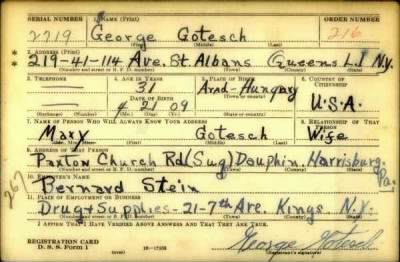 SERIAL NUMBER 1. NAME (Print) ORDER NUMBER
2719 George Gotesch 216
(First) (Middle) (Last)
2. ADDRESS (Print)
219-41-114 Ave. St. Albans Queens L.I N.Y.
(Number and street or R. F. D. number) (Town) (County) (State)
3. TELEPHONE 4. AGE IN YEARS 5. PLACE OF BIRTH 6. COUNTRY OF CITIZENSHIP
31 Arad-Hungary
DATE OF BIRTH
4 21 09 U.S.A.
(Mo.) (Day) (Yr.)
7. NAME OF PERSON WHO WILL ALWAYS KNOW YOUR ADDRESS 8. RELATIONSHIP OF THAT PERSON
Mary Gotesch Wife
(Mr., Mrs., Miss) (First) (Middle) (Last)
9. ADDRESS OF THAT PERSON
Paxton Church Rd (Sug) Dauphin. Harrisburg Pa.
(Number and street or R. F. D. number) (Town) (County) (State)
267
10. EMPLOYER'S NAME
Bernard Stein
11. PLACE OF EMPLOYMENT OR BUSINESS
Drug+Supplies-21-7th Ave. Kings N.Y.
(Number and street or R. F. D. number) (Town) (County) (State)
I AFFIRM THAT I HAVE VERIFIED ABOVE ANSWERS AND THAT THEY ARE TRUE.
REGISTRATION CARD
D. S. S. Form 1 16-17105 George Gotesch
(Registrant's signature)